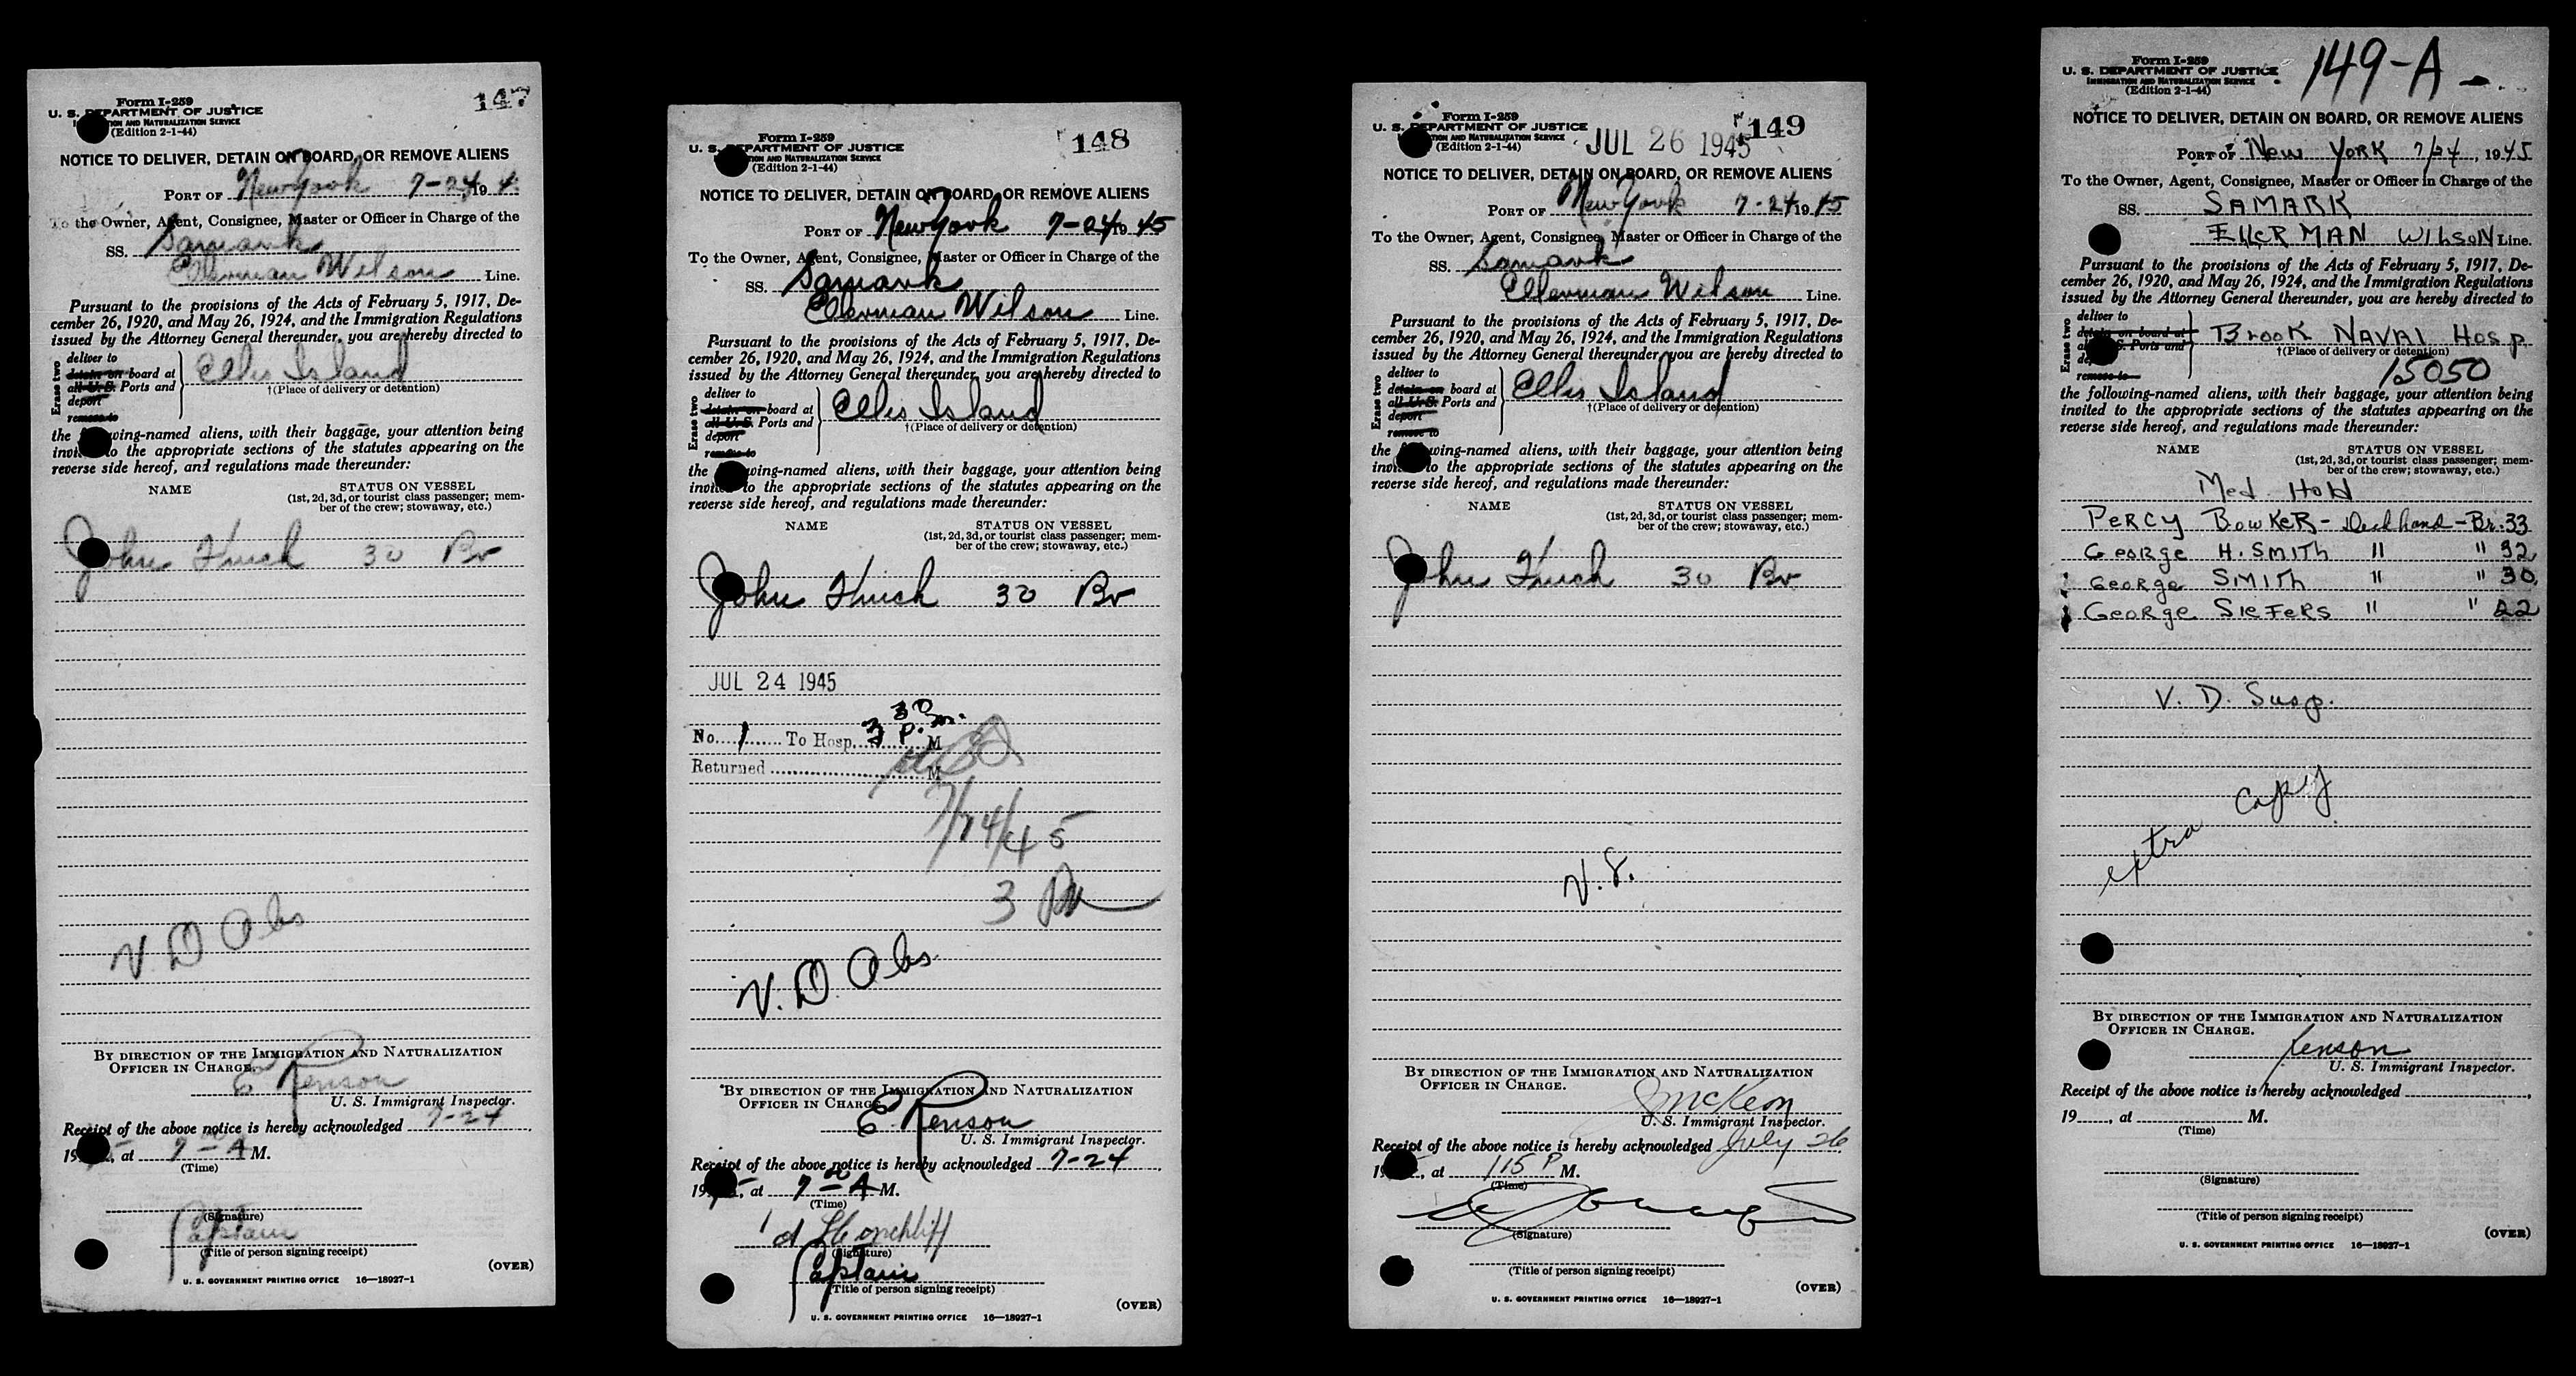 147
Form I-259
U. S. DEPARTMENT OF JUSTICE
ION AND NATURALIZATION SERVICE
(Edition 2-1-44)
NOTICE TO DELIVER, DETAIN ON BOARD, OR REMOVE ALIENS
PORT OF New York 7-24 19 4
To the Owner, Agent, Consignee, Master or Officer in Charge of the
SS. Samark
Ellerman Wilson Line.
Pursuant to the provisions of the Acts of February 5, 1917, De-
cember 26, 1920, and May 26, 1924, and the Immigration Regulations
issued by the Attorney General thereunder, you are hereby directed to
Erase two
deliver to
detain on board at
all U.S. Ports and
deport
remove to
Ellis Island
†(Place of delivery or detention)
the following-named aliens, with their baggage, your attention being
invited to the appropriate sections of the statutes appearing on the
reverse side hereof, and regulations made thereunder:
NAME STATUS ON VESSEL
(1st, 2d, 3d, or tourist class passenger; mem-
ber of the crew; stowaway, etc.)
John 30 Br
V. D Obs
BY DIRECTION OF THE IMMIGRATION AND NATURALIZATION
OFFICER IN CHARGE.
E Renson
U. S. Immigrant Inspector.
Receipt of the above notice is hereby acknowledged 7-24
19, at 7 00 A M.
(Time)
(Signature)
Captain
(Title of person signing receipt)
(OVER)
U. S. GOVERNMENT PRINTING OFFICE 16—18927-1
148
Form I-259
U. S. DEPARTMENT OF JUSTICE
ION AND NATURALIZATION SERVICE
(Edition 2-1-44)
NOTICE TO DELIVER, DETAIN ON BOARD, OR REMOVE ALIENS
PORT OF New York 7-24 19 45
To the Owner, Agent, Consignee, Master or Officer in Charge of the
SS. Samark
Ellerman Wilson Line.
Pursuant to the provisions of the Acts of February 5, 1917, De-
cember 26, 1920, and May 26, 1924, and the Immigration Regulations
issued by the Attorney General thereunder, you are hereby directed to
Erase two
deliver to
detain on board at
all U.S. Ports and
deport
remove to
Ellis Island
†(Place of delivery or detention)
the following-named aliens, with their baggage, your attention being
invited to the appropriate sections of the statutes appearing on the
reverse side hereof, and regulations made thereunder:
NAME STATUS ON VESSEL
(1st, 2d, 3d, or tourist class passenger; mem-
ber of the crew; stowaway, etc.)
John 30 Br
JUL 24 1945
No. 1 To Hosp. 3 30 P. M
Returned M
7/24/45
3 Pm
V. D Obs
BY DIRECTION OF THE IMMIGRATION AND NATURALIZATION
OFFICER IN CHARGE
E. Renson
U. S. Immigrant Inspector.
Receipt of the above notice is hereby acknowledged 7-24
19, at 7 00 A M.
(Time)
(Signature)
Captain
(Title of person signing receipt)
(OVER)
U. S. GOVERNMENT PRINTING OFFICE 16—18927-1
149
Form I-259
U. S. DEPARTMENT OF JUSTICE
ION AND NATURALIZATION SERVICE
(Edition 2-1-44)
JUL 26 1945
NOTICE TO DELIVER, DETAIN ON BOARD, OR REMOVE ALIENS
PORT OF New York 7-24 19 45
To the Owner, Agent, Consignee, Master or Officer in Charge of the
SS. Samark
Ellerman Wilson Line.
Pursuant to the provisions of the Acts of February 5, 1917, De-
cember 26, 1920, and May 26, 1924, and the Immigration Regulations
issued by the Attorney General thereunder, you are hereby directed to
Erase two
deliver to
detain on board at
all U.S. Ports and
deport
remove to
Ellis Island
†(Place of delivery or detention)
the following-named aliens, with their baggage, your attention being
invited to the appropriate sections of the statutes appearing on the
reverse side hereof, and regulations made thereunder:
NAME STATUS ON VESSEL
(1st, 2d, 3d, or tourist class passenger; mem-
ber of the crew; stowaway, etc.)
John 30 Br
BY DIRECTION OF THE IMMIGRATION AND NATURALIZATION
OFFICER IN CHARGE.
McKeon
U. S. Immigrant Inspector.
Receipt of the above notice is hereby acknowledged July 26
19, at 1 15 P M.
(Time)
(Signature)
(Title of person signing receipt)
(OVER)
U. S. GOVERNMENT PRINTING OFFICE 16—18927-1
149-A
Form I-259
U. S. DEPARTMENT OF JUSTICE
IMMIGRATION AND NATURALIZATION SERVICE
(Edition 2-1-44)
NOTICE TO DELIVER, DETAIN ON BOARD, OR REMOVE ALIENS
PORT OF New YORK 7/24, 1945
To the Owner, Agent, Consignee, Master or Officer in Charge of the
SS. SAMARK
EllerMAN WILSON Line.
Pursuant to the provisions of the Acts of February 5, 1917, De-
cember 26, 1920, and May 26, 1924, and the Immigration Regulations
issued by the Attorney General thereunder, you are hereby directed to
Erase two
deliver to
detain on board at
all U.S. Ports and
deport
remove to
Brook NAVAl Hosp
†(Place of delivery or detention)
15050
the following-named aliens, with their baggage, your attention being
invited to the appropriate sections of the statutes appearing on the
reverse side hereof, and regulations made thereunder:
NAME STATUS ON VESSEL
(1st, 2d, 3d, or tourist class passenger; mem-
ber of the crew; stowaway, etc.)
Med Hold
PERCY BOWKER - Deckhand - Br. 33
GEORGE H. SMITH " " 32
GEORGE SMITH " " 30
GEORGE SIEFERS " " 22
V. D. Susp.
extra copy
BY DIRECTION OF THE IMMIGRATION AND NATURALIZATION
OFFICER IN CHARGE.
Renson
U. S. Immigrant Inspector.
Receipt of the above notice is hereby acknowledged
19, at M.
(Time)
(Signature)
(Title of person signing receipt)
(OVER)
U. S. GOVERNMENT PRINTING OFFICE 16—18927-1